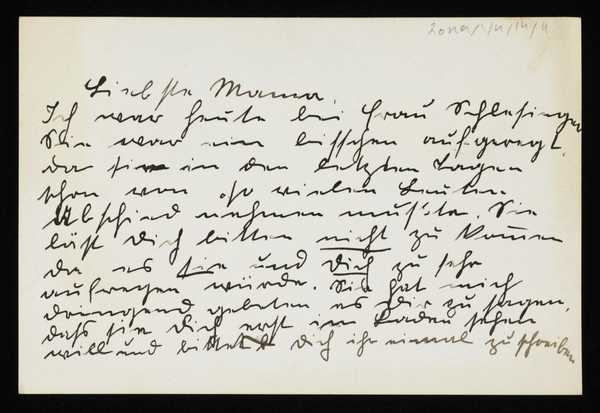 Liebste Mama.
Ich war heute bei Frau Schlesinger
Sie war ein bisschen aufgeregt,
da sie in den letzten Tagen
schon von so vielen Leuten
Abschied nehmen musste. Sie
läßt Dich bitten nicht zu kommen
da es sie und Dich zu sehr
aufregen würde. Sie hat mich
dringend gebeten es Dir zu sagen,
dass sie Dich erst in Baden sehen
will und bittet Dich ihr einmal zu schreiben